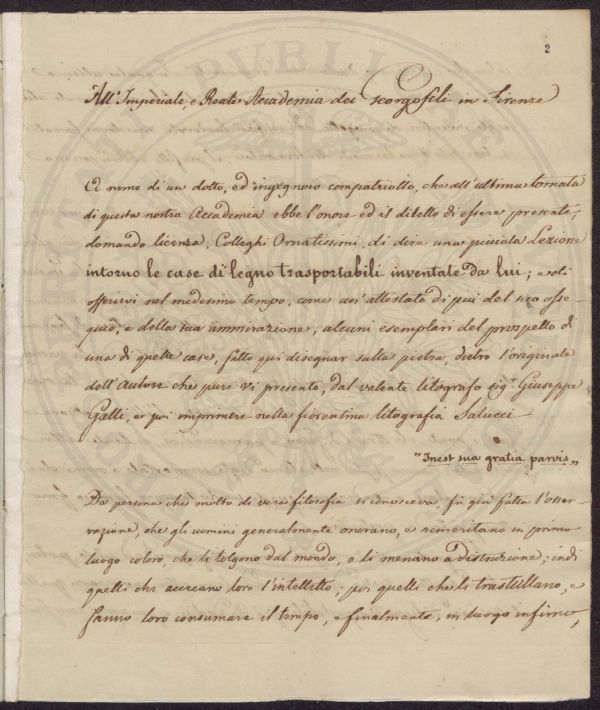 2
All' Imperiale, e Reale Accademia dei Georgofili in Firenze
A nome di un dotto, ed ingegnoso compatriotto, che all' ultima tornata
di questa nostra Accademia ebbe l'onore ed il diletto di essere presente,
domando licenza, Colleghi Ornatissimi, di dire una picciola Lezione
intorno le case di legno trasportabili inventate da lui; e di
offerirvi nel medesimo tempo, come un' attestato di più del suo osse-
quio, e della sua ammirazione, alcuni esemplari del prospetto di
una di quelle case, fatto qui disegnar sulla pietra, dietro l'originale
dell' Autore che pure vi presento, dal valente litografo sig.r Giuseppe
Galli, e poi imprimere nella fiorentina litografia Salucci
"Inest sua gratia parvis„
Da persona che molto di vera filosofia si conosceva, fu già fatta l'osser-
vazione, che gli uomini generalmente onorano, e rimeritano in primo
luogo coloro, che li tolgono dal mondo, o li menano a distruzione; indi
quelli che accecano loro l'intelletto; poi quelli che li trastullano, e
fanno loro consumare il tempo, e finalmente, in luogo infimo,